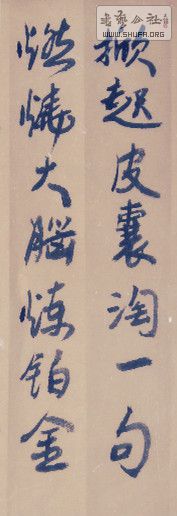 掀起皮囊淘一句
燃烧大脑炼铂金
书艺公社
WWW.SHUFA.ORG